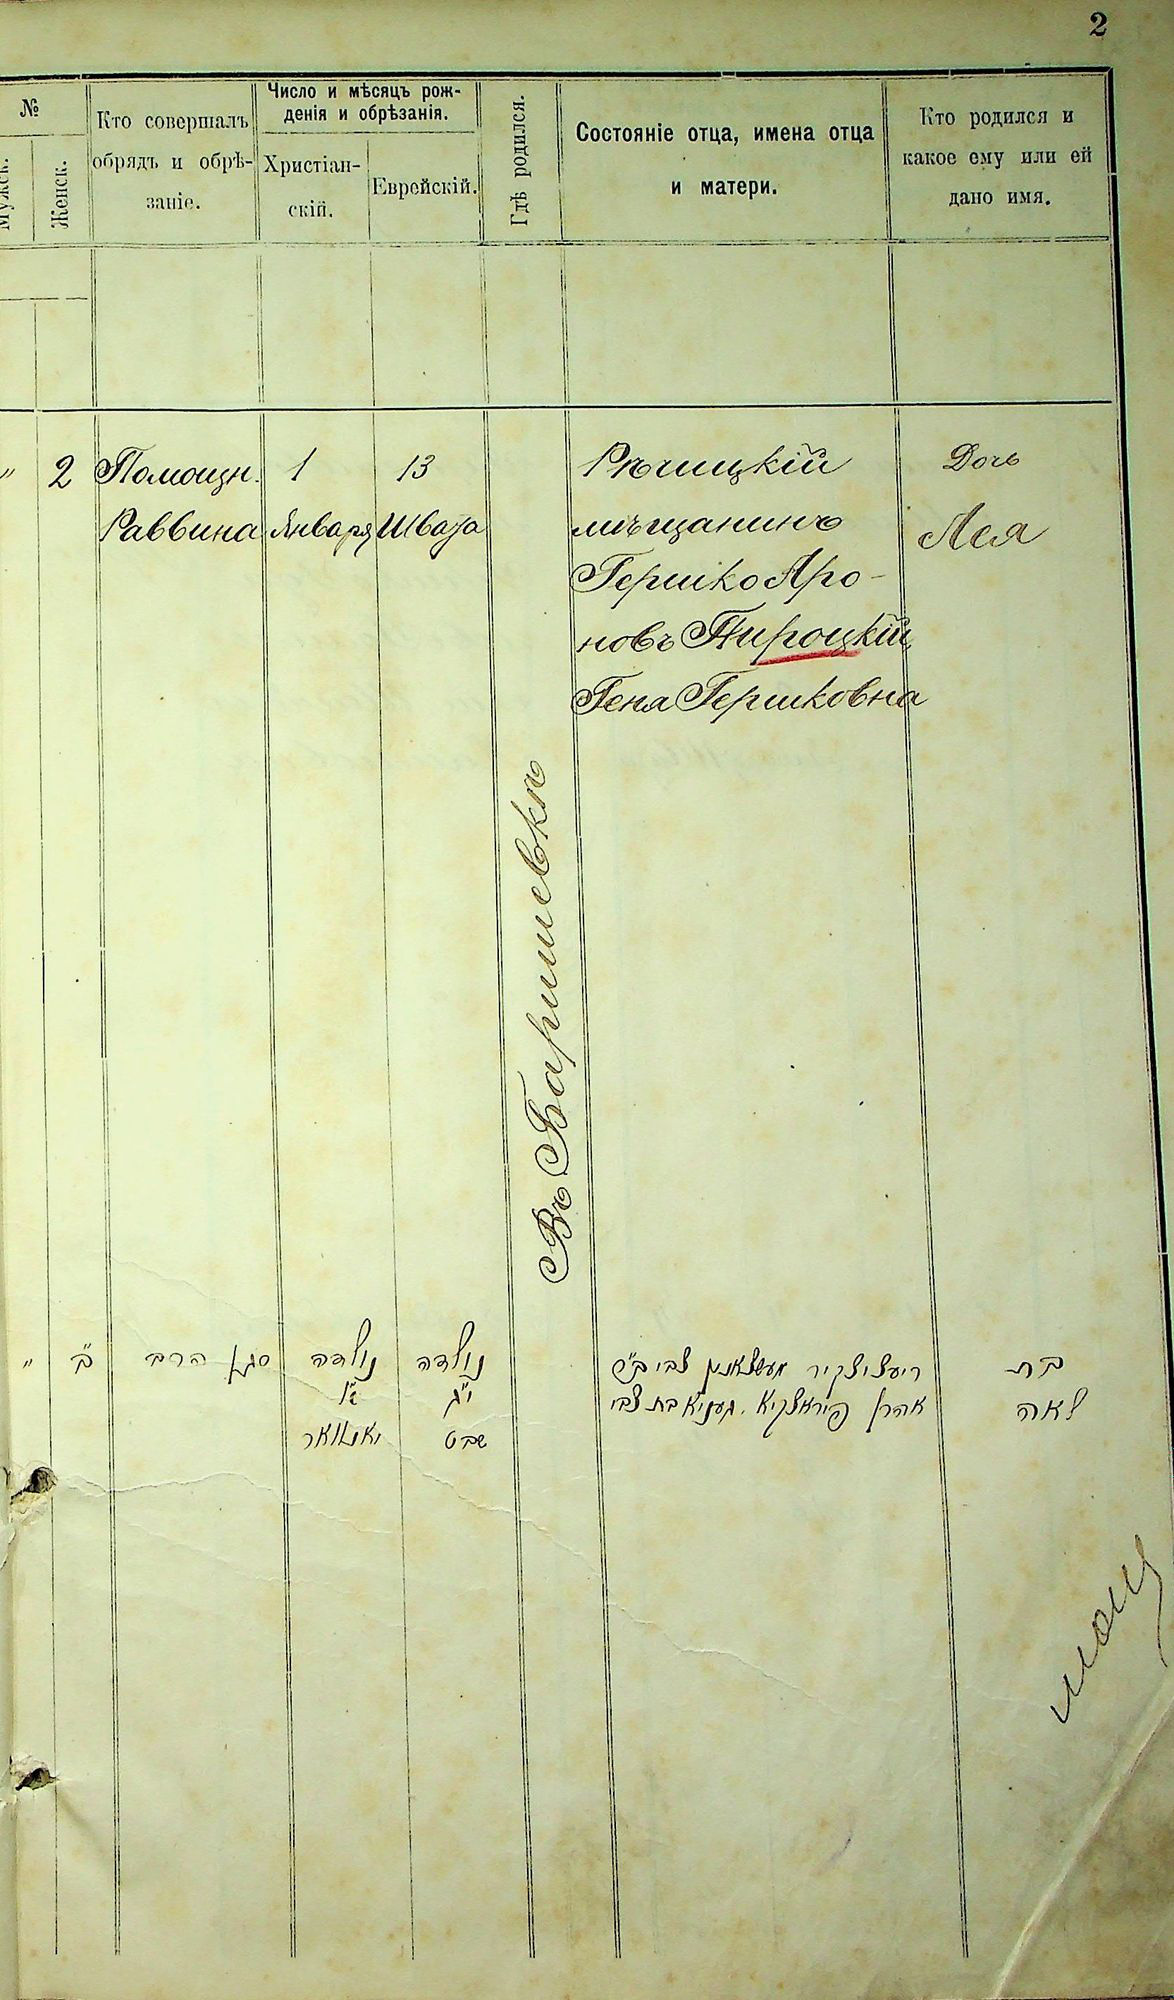 2
№
Мужск.
Женск.
Кто совершалъ
обрядъ и обрѣ-
заніе.
Число и мѣсяцъ рож-
денія и обрѣзанія.
Христіан-
скій.
Еврейскій.
Гдѣ родился.
Состояніе отца, имена отца
и матери.
Кто родился и
какое ему или ей
дано имя.
"
2
Помощн.
Раввина
1
Января
13
Швата
Въ Баришевкѣ
Рѣчицкій
мѣщанинъ
Гершко Аро-
новъ Пироцкій,
Геня Гершковна
Дочь
Лея
"
ב"
סגן הרב
נולדה
א"
יאנואר
נולדה
י"ג
שבט
ריעציצקיר מעשצאנין צבי ב"ר
אהרן פיראצקיא. געניא בת צבי
בת
לאה